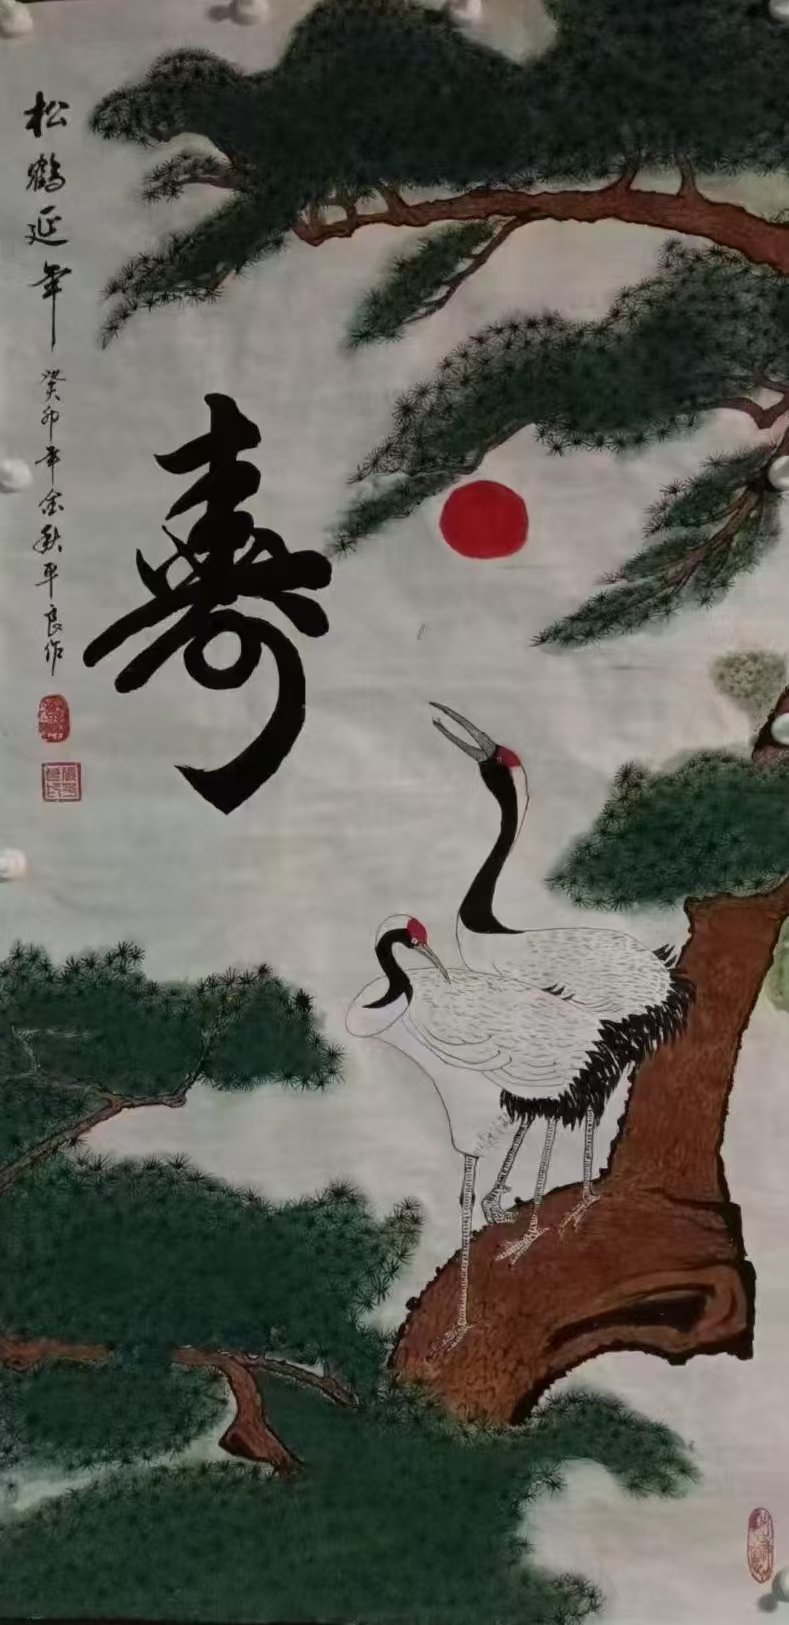 松鹤延年
癸卯年金秋平良作
寿